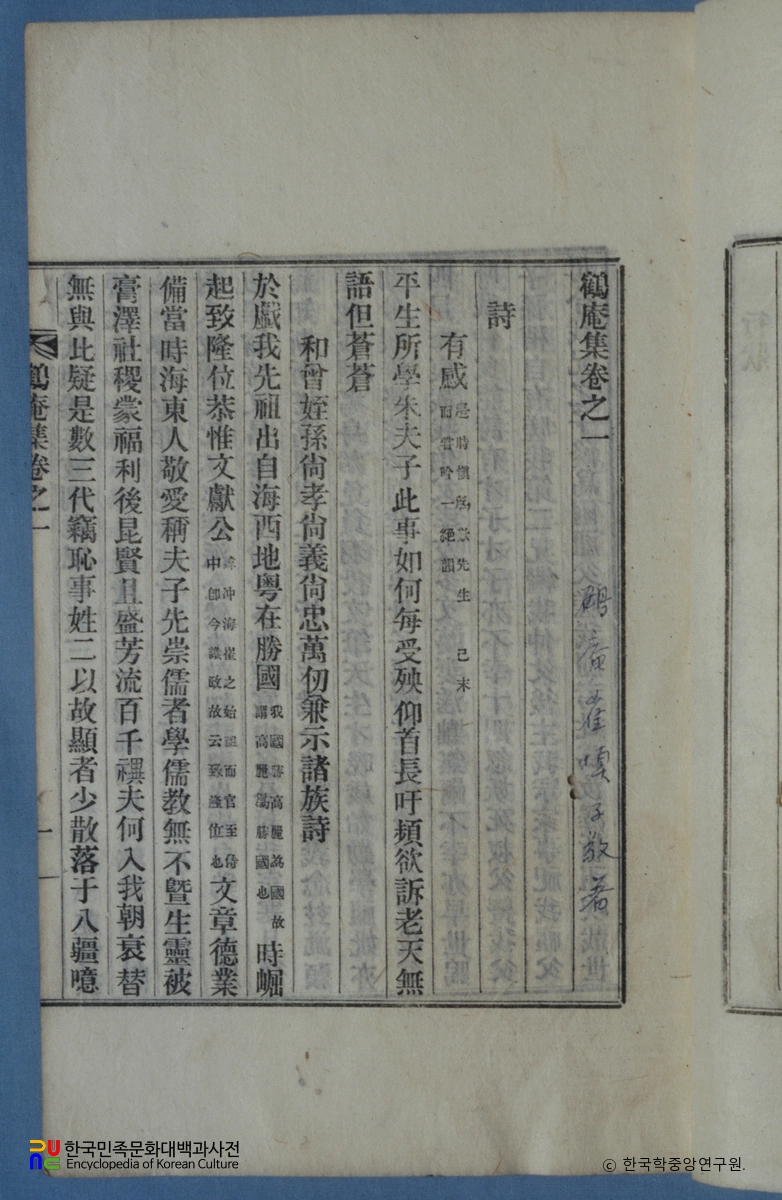 鶴庵集卷之一
鶴庵崔 子敬著
詩
有感
而嘗吟一絕韻
先生
己未
平生所學朱夫子此事如何每受殃仰首長吁頻欲訴老天無
語但蒼蒼
和曾姪孫尙孝尙義尙忠萬仞兼示諸族詩
於戲我先祖出自海西地粤在勝國
我國承高麗爲國故
謂高麗爲勝國也
時崛
起致隆位恭惟文獻公
諱冲海崔之始祖而官至侍
中卽今議政故云致隆位也
文章德業
備當時海東人敬愛稱夫子先崇儒者學儒敎無不曁生靈被
膏澤社稷蒙福利後昆賢且盛芳流百千禩夫何入我朝衰替
無與比疑是數三代竊恥事姓二以故顯者少散落于八疆噫
鶴庵集卷之一
一
行狀
한국민족문화대백과사전
Encyclopedia of Korean Culture
ⓒ 한국학중앙연구원.